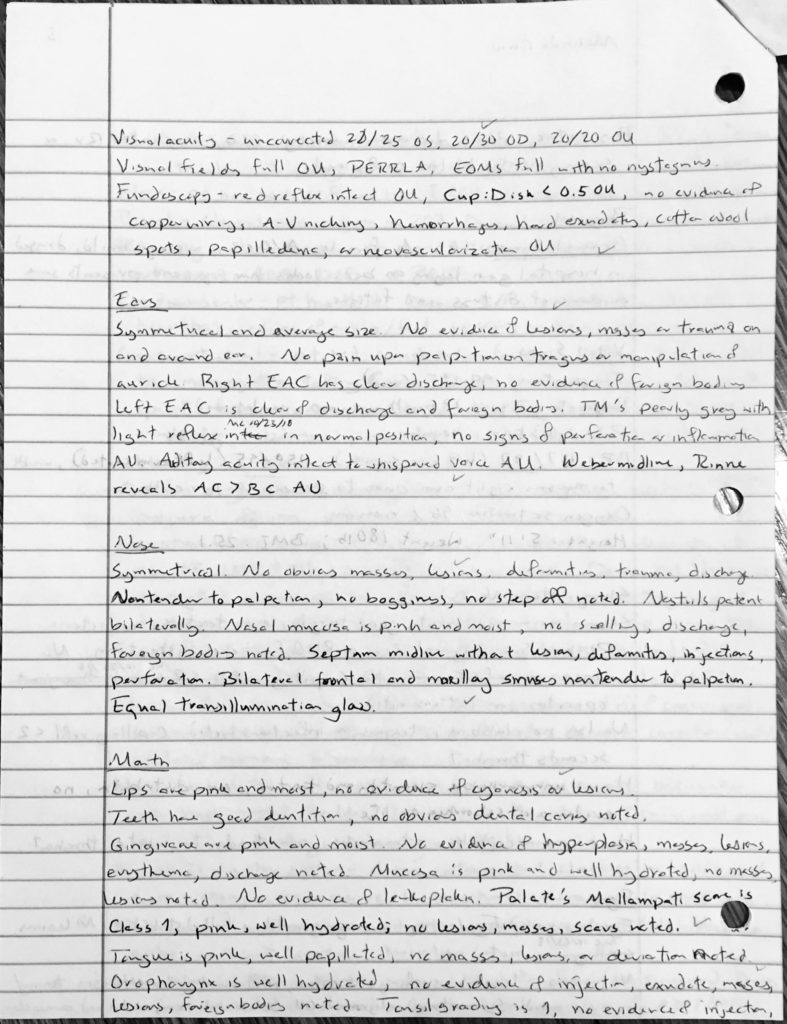 Visual acuity - uncorrected 20/25 OS, 20/30 OD, 20/20 OU
Visual fields full OU, PERRLA, EOMs full with no nystagmus.
Fundoscopy - red reflex intact OU, Cup:Disk < 0.5 OU, no evidence of
copper wiring, A-V nicking, hemorrhages, hard exudates, cotton wool
spots, papilledema, or neovascularization OU
Ears
Symmetrical and average size. No evidence of lesions, masses or trauma on
and around ear. No pain upon palpation on tragus or manipulation of
auricle. Right EAC has clear discharge, no evidence of foreign bodies
Left EAC is clear of discharge and foreign bodies. TM's pearly grey with
light reflex in normal position, no signs of perforation or inflammation
AU. Auditory acuity intact to whispered voice AU. Weber midline, Rinne
reveals AC > BC AU
Nose
Symmetrical. No obvious masses, lesions, deformities, trauma, discharge.
Nontender to palpation, no bogginess, no step off noted. Nostrils patent
bilaterally. Nasal mucosa is pink and moist, no swelling, discharge,
foreign bodies noted. Septum midline without lesion, deformities, injections,
perforation. Bilateral frontal and maxillary sinuses nontender to palpation.
Equal transillumination glow.
Mouth
Lips are pink and moist, no evidence of cyanosis or lesions.
Teeth have good dentition, no obvious dental caries noted.
Gingivae are pink and moist. No evidence of hyperplasia, masses, lesions,
erythema, discharge noted. Mucosa is pink and well hydrated, no masses,
lesions noted. No evidence of leukoplakia. Palate's Mallampati score is
Class 1, pink, well hydrated; no lesions, masses, scars noted.
Tongue is pink, well papillated, no masses, lesions, or deviation noted.
Oropharynx is well hydrated, no evidence of injection, exudate, masses,
lesions, foreign bodies noted. Tonsil grading is 1, no evidence of injection,